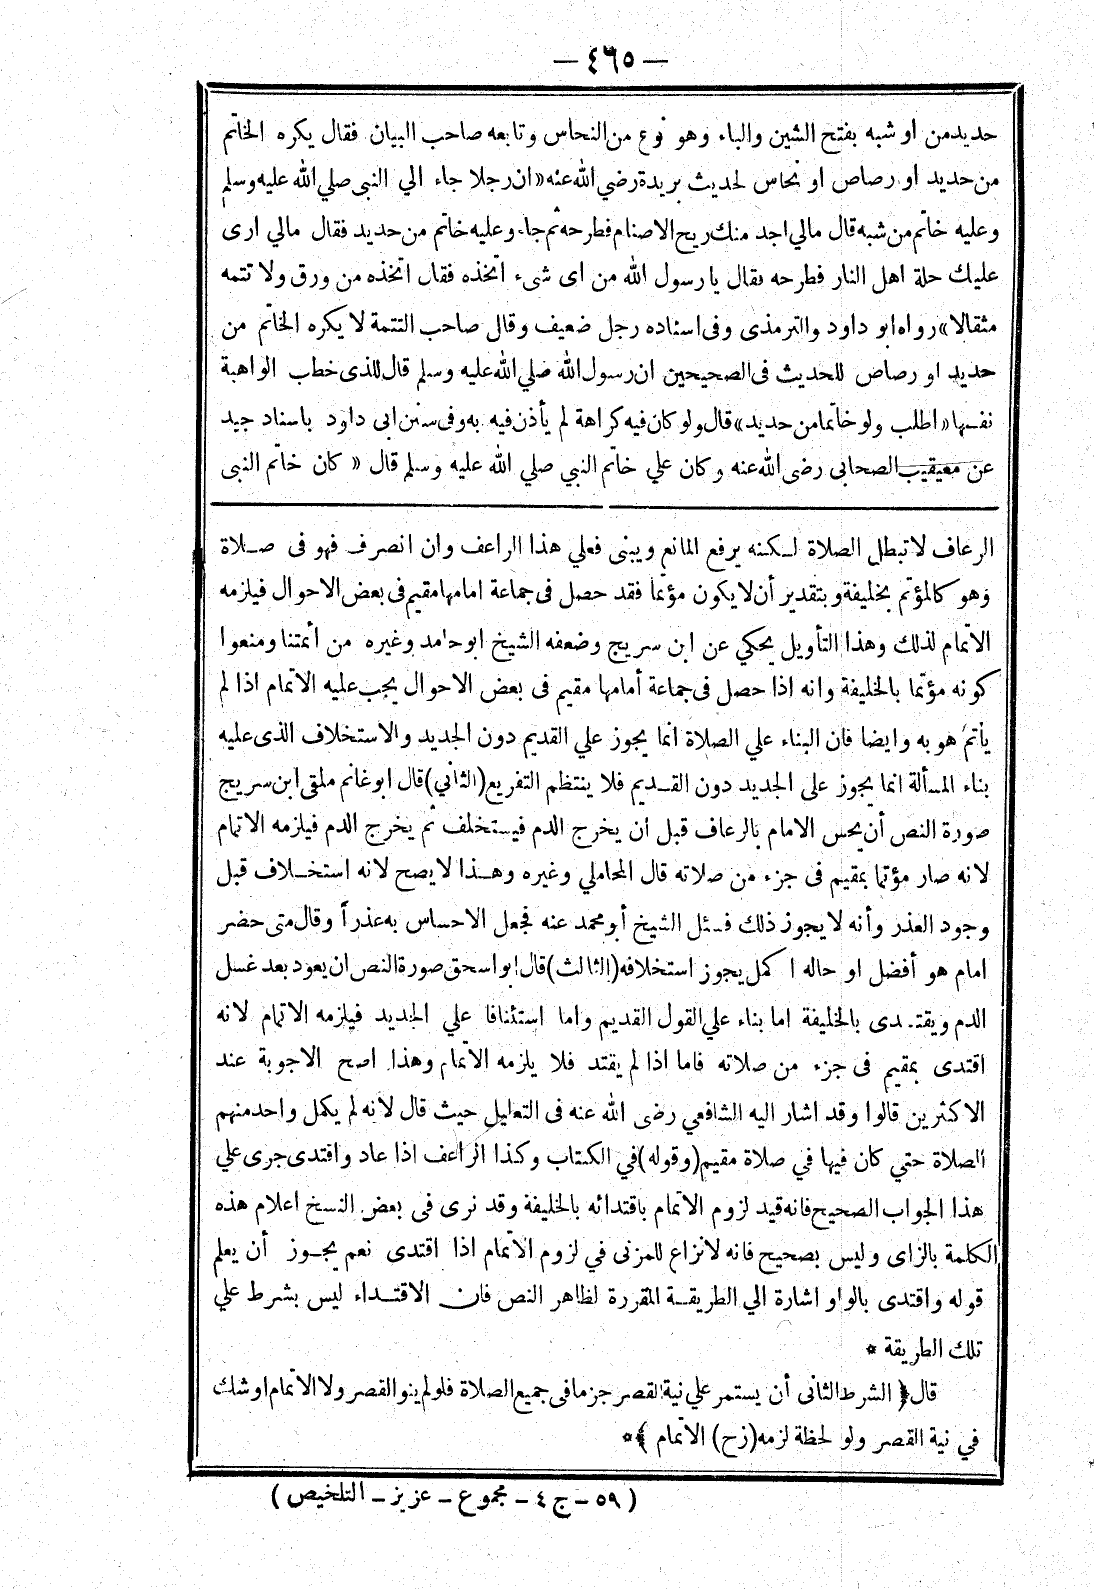 — ٤٦٥ —
حديدمن او شبه بفتح الشين والباء وهو نوع من النحاس وتابعه صاحب البيان فقال يكره الخاتم
من حديد او رصاص او نحاس لحديث بريدة رضي الله عنه «ان رجلا جاء الي النبي صلي الله عليه وسلم
وعليه خاتم من شبه قال مالي اجد منك ريح الاصنام فطرحه ثم جاء وعليه خاتم من حديد فقال مالي ارى
عليك حلة اهل النار فطرحه فقال يا رسول الله من اى شىء اتخذه فقال اتخذه من ورق ولا تتمه
مثقالا» رواه ابو داود والترمذى وفى اسناده رجل ضعيف وقال صاحب التتمة لا يكره الخاتم من
حديد او رصاص للحديث فى الصحيحين ان رسول الله صلي الله عليه وسلم قال للذى خطب الواهبة
نفسها «اطلب ولو خاتما من حديد» قال ولو كان فيه كراهة لم يأذن فيه به وفى سنن ابى داود باسناد جيد
عن معيقيب الصحابى رضى الله عنه وكان علي خاتم النبي صلي الله عليه وسلم قال «كان خاتم النبى
الرعاف لا تبطل الصلاة لكنه يرفع المانع ويبنى فعلي هذا الراعف وان انصرف فهو فى صلاة
وهو كالمؤتم بخليفة وبتقدير أن لا يكون مؤتما فقد حصل فى جماعة امامها مقيم فى بعض الاحوال فيلزمه
الاتمام لذلك وهذا التأويل يحكي عن ابن سريج وضعفه الشيخ ابو حامد وغيره من أئمتنا ومنعوا
كونه مؤتما بالخليفة وانه اذا حصل فى جماعة أمامها مقيم فى بعض الاحوال يجب عليه الاتمام اذا لم
يأتم هو به وايضا فان البناء علي الصلاة انما يجوز علي القديم دون الجديد والاستخلاف الذى عليه
بناء المسألة انما يجوز على الجديد دون القديم فلا ينتظم التفريع (الثانى) قال ابو غانم ملقى ابن سريج
صورة النص أن يحس الامام بالرعاف قبل أن يخرج الدم فيستخلف ثم يخرج الدم فيلزمه الاتمام
لانه صار مؤتما بمقيم فى جزء من صلاته قال المحاملي وغيره وهذا لا يصح لانه استخلاف قبل
وجود العذر وأنه لا يجوز ذلك فسئل الشيخ أبو محمد عنه فجعل الاحساس به عذراً وقال متى حضر
امام هو أفضل او حاله اكمل يجوز استخلافه (الثالث) قال ابو اسحق صورة النص ان يعود بعد غسل
الدم ويقتدى بالخليفة اما بناء علي القول القديم واما استئنافا علي الجديد فيلزمه الاتمام لانه
اقتدى بمقيم فى جزء من صلاته فاما اذا لم يقتد فلا يلزمه الاتمام وهذا اصح الاجوبة عند
الاكثرين قالوا وقد اشار اليه الشافعي رضى الله عنه فى التعليل حيث قال لأنه لم يكمل واحد منهم
الصلاة حتي كان فيها في صلاة مقيم (وقوله) في الكتاب وكذا الراعف اذا عاد واقتدى جرى علي
هذا الجواب الصحيح فانه قيد لزوم الاتمام باقتدائه بالخليفة وقد نرى فى بعض النسخ اعلام هذه
الكلمة بالزاى وليس بصحيح فانه لا نزاع للمزنى في لزوم الاتمام اذا اقتدى نعم يجوز أن يعلم
قوله واقتدى بالواو اشارة الي الطريقة المقررة لظاهر النص فان الاقتداء ليس بشرط علي
تلك الطريقة *
قال ﴿ الشرط الثانى أن يستمر علي نية القصر جزما فى جميع الصلاة فلو لم ينو القصر ولا الاتمام او شك
في نية القصر ولو لحظة لزمه (زح) الاتمام ﴾*
(٥٩ - ج ٤ - مجموع - عزيز - التلخيص)